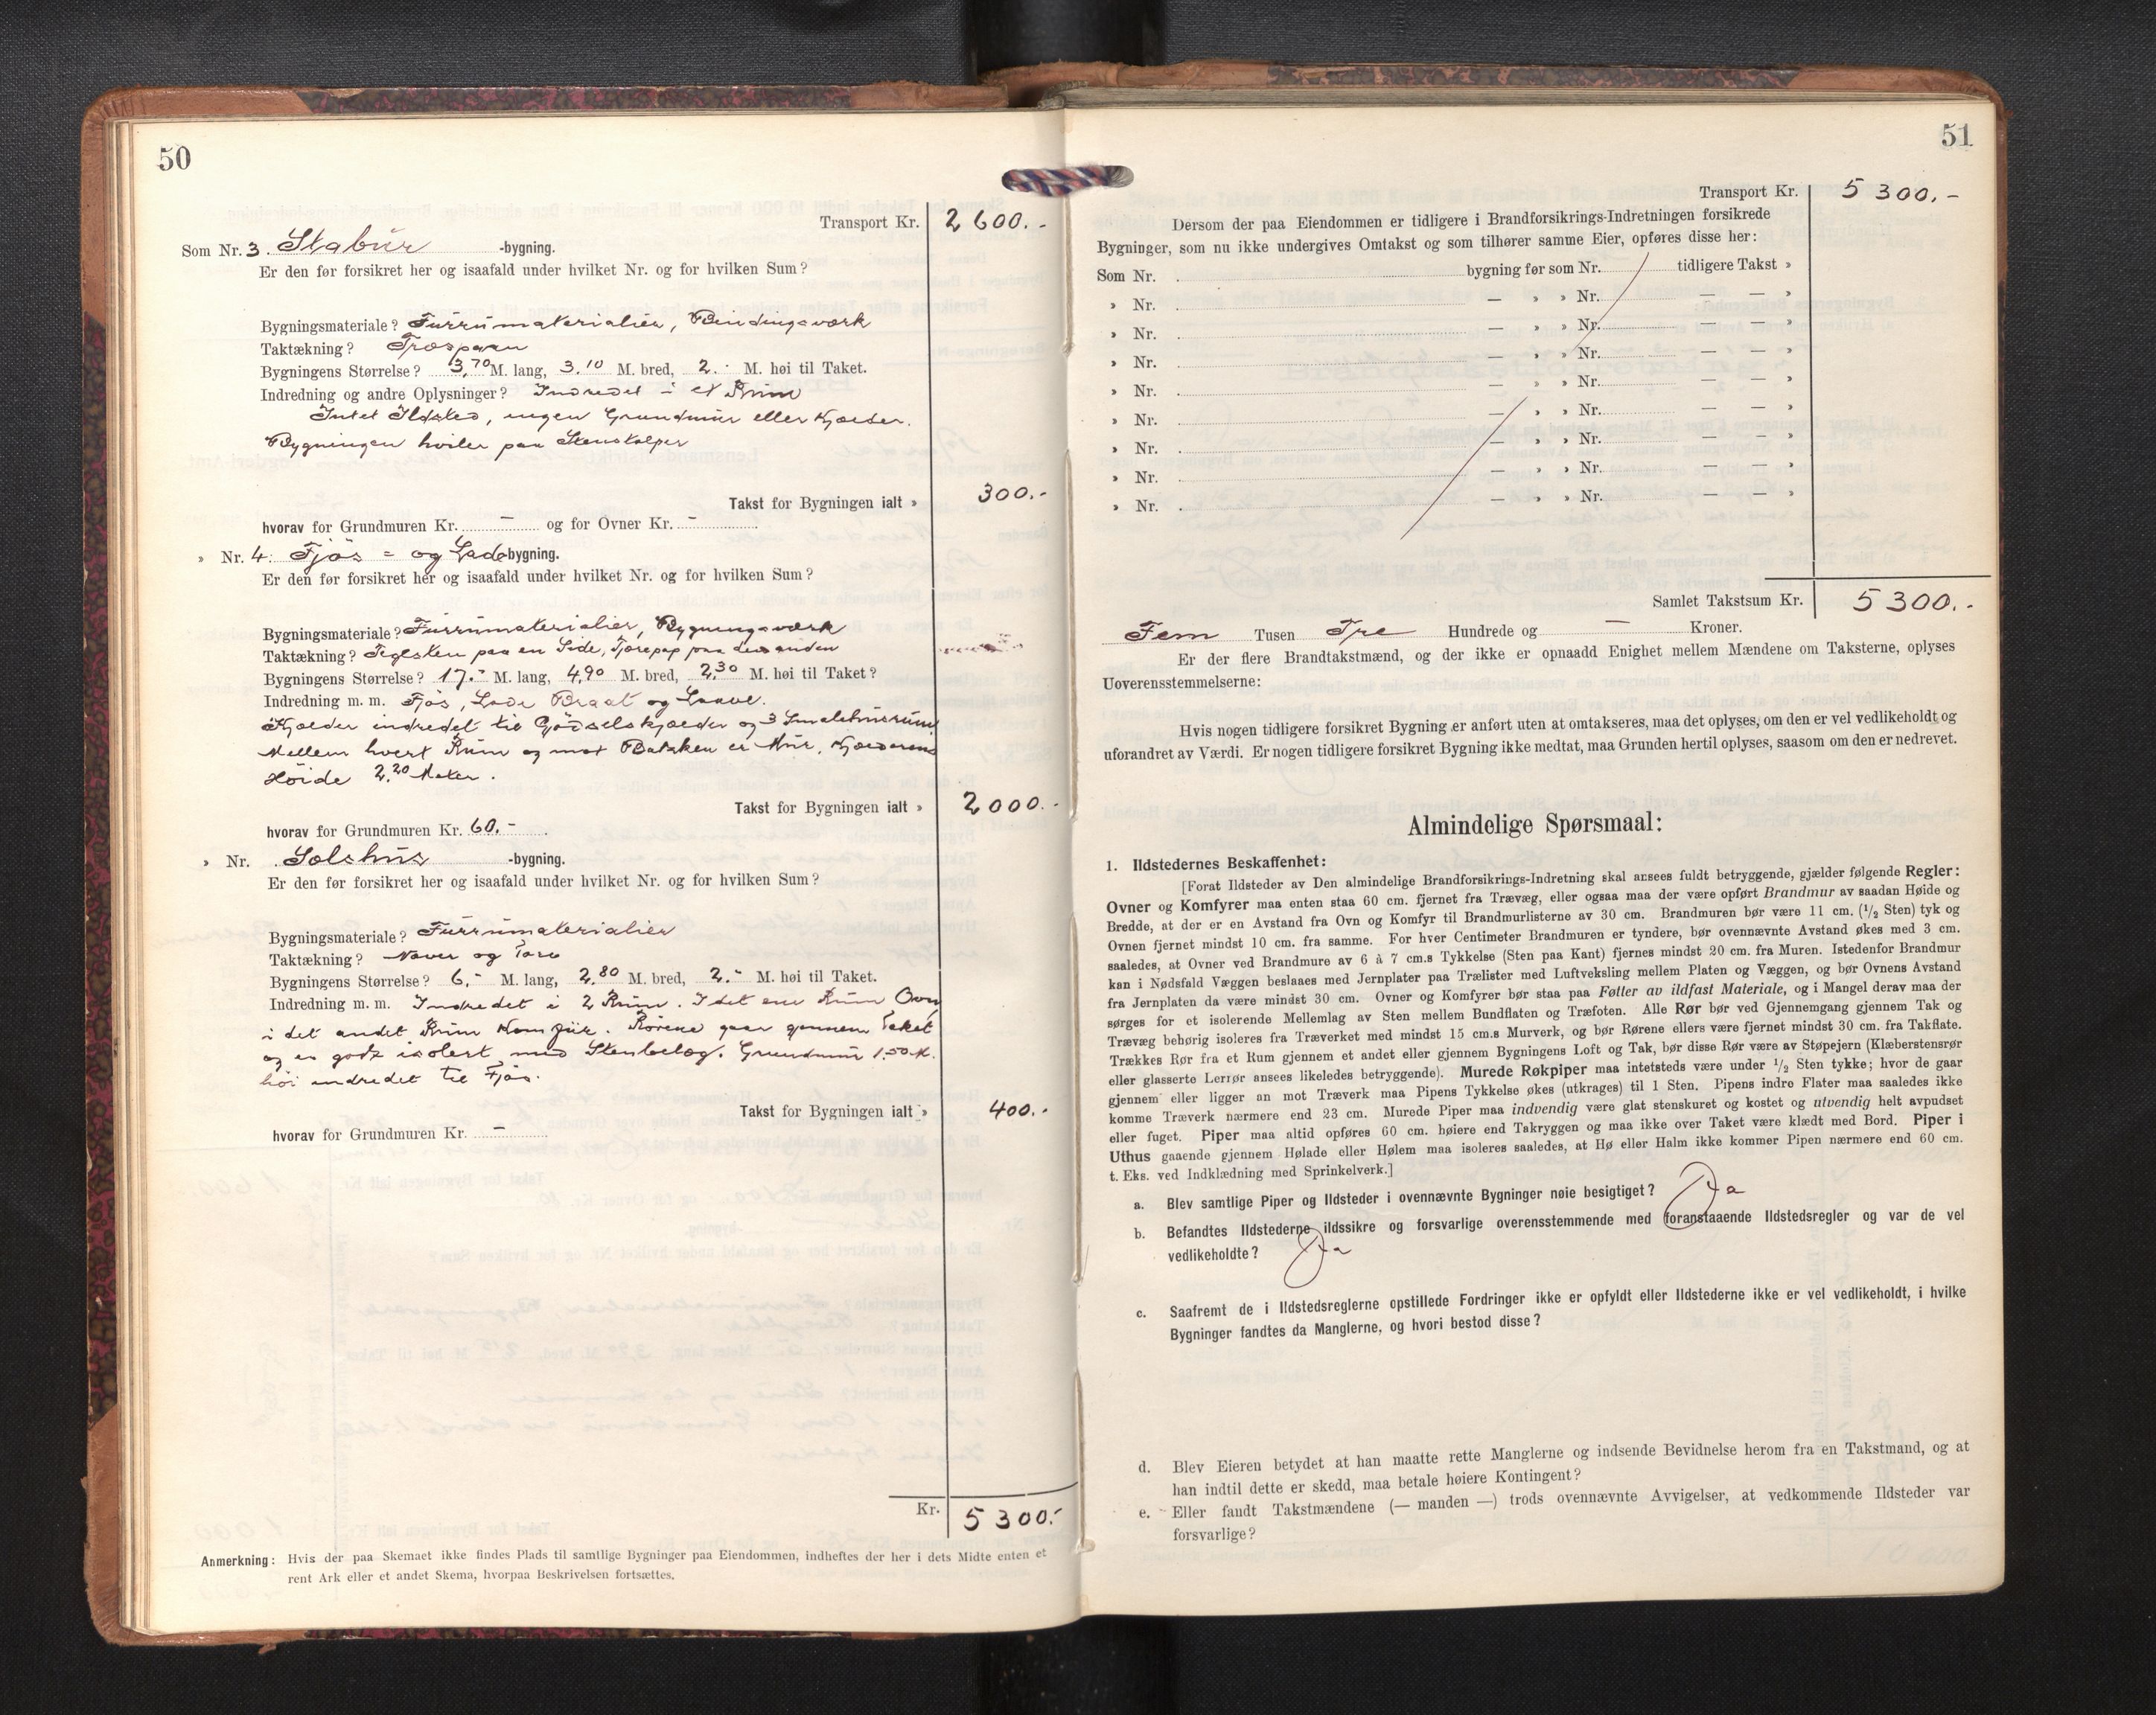 50
Transport Kr. 2 600.-
Som Nr. 3. Stabur -bygning.
Er den før forsikret her og isaafald under hvilket Nr. og for hvilken Sum?
Bygningsmateriale? Furrumaterialier, Bindingsværk
Taktækning? Træspaan
Bygningens Størrelse? 3,70 M. lang, 3.10 M. bred, 2.- M. høi til Taket.
Indredning og andre Oplysninger? Indredet i et Rum
Intet Ildsted, ingen Grundmur eller Kjælder.
Bygningen hviler paa Stenstolper
Takst for Bygningen ialt » 300.-
hvorav for Grundmuren Kr. — og for Ovner Kr. -
» Nr. 4. Fjøs = og Lade-bygning.
Er den før forsikret her og isaafald under hvilket Nr. og for hvilken Sum?
Bygningsmateriale? Furrumaterialier, Bygningsværk
Taktækning? Teglsten paa en Side, Tjærepap paa den anden
Bygningens Størrelse? 17.- M. lang, 4,90 M. bred, 2,30 M. høi til Taket?
Indredning m. m. Fjøs, Lade og Laave.
Kjælder indredet til Gjødselskjælder og 3 Smalehusrum.
Mellem hvert Rum og mot Bakken er Mur, Kjælderens
Høide 2,20 Meter.
Takst for Bygningen ialt » 2000.-
hvorav for Grundmuren Kr. 60.-
» Nr. Selshus -bygning.
Er den før forsikret her og isaafald under hvilket Nr. og for hvilken Sum?
Bygningsmateriale? Furrumaterialier
Taktækning? Næver og Torv
Bygningens Størrelse? 6,- M. lang, 2,80 M. bred, 2.- M. høi til Taket.
Indredning m. m. Indredet i 2 Rum. I det ene Rum Ovn
i det andet Rum Komfur. Rørene gaar gjennem Taket
og er godt isolert med Stenbelæg. Grundmur 1.50 M.
høi indredet til Fjøs.
Takst for Bygningen ialt » 400.-
hvorav for Grundmuren Kr. —
Kr. 5 300.-
Anmerkning: Hvis der paa Skemaet ikke findes Plads til samtlige Bygninger paa Eiendommen, indheftes der her i dets Midte enten et
rent Ark eller et andet Skema, hvorpaa Beskrivelsen fortsættes.
51
Transport Kr. 5 300.-
Dersom der paa Eiendommen er tidligere i Brandforsikrings-Indretningen forsikrede
Bygninger, som nu ikke undergives Omtakst og som tilhører samme Eier, opføres disse her:
Som Nr. bygning før som Nr. tidligere Takst »
» Nr. — » » Nr. — — »
» Nr. — » » Nr. — — »
» Nr. — » » Nr. — — »
» Nr. — » » Nr. — — »
» Nr. — » » Nr. — — »
» Nr. — » » Nr. — — »
» Nr. — » » Nr. — — »
» Nr. — » » Nr. — — »
Samlet Takstsum Kr. 5 300.-
Fem Tusen Tre Hundrede og — Kroner.
Er der flere Brandtakstmænd, og der ikke er opnaadd Enighet mellem Mændene om Taksterne, oplyses
Uoverensstemmelserne:
Hvis nogen tidligere forsikret Bygning er anført uten at omtakseres, maa det oplyses, om den er vel vedlikeholdt og
uforandret av Værdi. Er nogen tidligere forsikret Bygning ikke medtat, maa Grunden hertil oplyses, saasom om den er nedrevet.
Almindelige Spørsmaal:
1. Ildstedernes Beskaffenhet:
[Forat Ildsteder av Den almindelige Brandforsikrings-Indretning skal ansees fuldt betryggende, gjælder følgende Regler:
Ovner og Komfyrer maa enten staa 60 cm. fjernet fra Trævæg, eller ogsaa maa der være opført Brandmur av saadan Høide og
Bredde, at der er en Avstand fra Ovn og Komfyr til Brandmurlisterne av 30 cm. Brandmuren bør være 11 cm. (1/2 Sten) tyk og
Ovnen fjernet mindst 10 cm. fra samme. For hver Centimeter Brandmuren er tyndere, bør ovennævnte Avstand økes med 3 cm.
saaledes, at Ovner ved Brandmure av 6 à 7 cm.s Tykkelse (Sten paa Kant) fjernes mindst 20 cm. fra Muren. Istedenfor Brandmur
kan i Nødsfald Væggen beslaaes med Jernplater paa Trælister med Luftveksling mellem Platen og Væggen, og bør Ovnens Avstand
fra Jernplaten da være mindst 30 cm. Ovner og Komfyrer bør staa paa Føtter av ildfast Materiale, og i Mangel derav maa der
sørges for et isolerende Mellemlag av Sten mellem Bundflaten og Træfoten. Alle Rør bør ved Gjennemgang gjennem Tak og
Trævæg behørig isoleres fra Træverket med mindst 15 cm.s Murverk, og bør Rørene ellers være fjernet mindst 30 cm. fra Takflate.
Trækkes Rør fra et Rum gjennem et andet eller gjennem Bygningens Loft og Tak, bør disse Rør være av Støpejern (Klæberstensrør
eller glasserte Lerrør ansees likeledes betryggende). Murede Røkpiper maa intetsteds være under 1/2 Sten tykke; hvor de gaar
gjennem eller ligger an mot Træverk maa Pipens Tykkelse økes (utkrages) til 1 Sten. Pipens indre Flater maa saaledes ikke
komme Træverk nærmere end 23 cm. Murede Piper maa indvendig være glat stenskuret og kostet og utvendig helt avpudset
eller fuget. Piper maa altid opføres 60 cm. høiere end Takryggen og maa ikke over Taket være klædt med Bord. Piper i
Uthus gaaende gjennem Hølade eller Hølem maa isoleres saaledes, at Hø eller Halm ikke kommer Pipen nærmere end 60 cm.
t. Eks. ved Indklædning med Sprinkelverk.]
a. Blev samtlige Piper og Ildsteder i ovennævnte Bygninger nøie besigtiget? Ja
b. Befandtes Ildstederne ildssikre og forsvarlige overensstemmende med foranstaaende Ildstedsregler og var de vel
vedlikeholdte? Ja
c. Saafremt de i Ildstedsreglerne opstillede Fordringer ikke er opfyldt eller Ildstederne ikke er vel vedlikeholdt, i hvilke
Bygninger fandtes da Manglerne, og hvori bestod disse?
d. Blev Eieren betydet at han maatte rette Manglerne og indsende Bevidnelse herom fra en Takstmand, og at
han indtil dette er skedd, maa betale høiere Kontingent?
e. Eller fandt Takstmændene (— manden —) trods ovennævnte Avvigelser, at vedkommende Ildsteder var
forsvarlige?